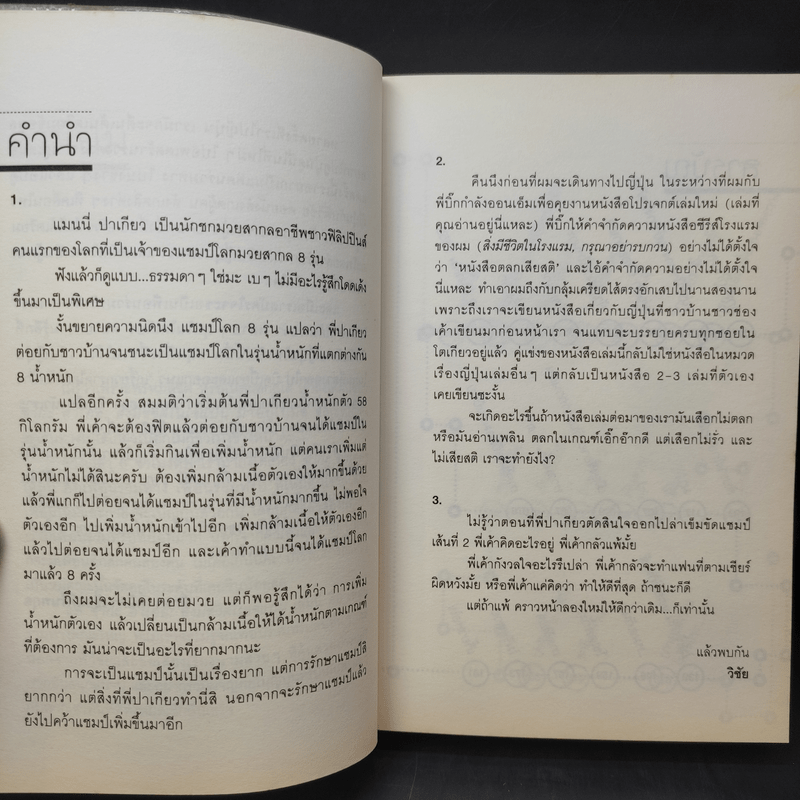 คำนำ
1.
แมนนี่ ปาเกียว เป็นนักชกมวยสากลอาชีพชาวฟิลิปปินส์
คนแรกของโลกที่เป็นเจ้าของแชมป์โลกมวยสากล 8 รุ่น
ฟังแล้วก็ดูแบบ...ธรรมดาๆ ใช่มะ เบๆ ไม่มีอะไรรู้สึกโดดเด้ง
ขึ้นมาเป็นพิเศษ
งั้นขยายความนิดนึง แชมป์โลก 8 รุ่น แปลว่า พี่ปาเกียว
ต่อยกับชาวบ้านจนชนะเป็นแชมป์โลกในรุ่นน้ำหนักที่แตกต่างกัน
8 น้ำหนัก
แปลอีกครั้ง สมมติว่าเริ่มต้นพี่ปาเกียวน้ำหนักตัว 58
กิโลกรัม พี่เค้าจะต้องฟิตแล้วต่อยกับชาวบ้านจนได้แชมป์ใน
รุ่นน้ำหนักนั้น แล้วก็เริ่มกินเพื่อเพิ่มน้ำหนัก แต่คนเราเพิ่มแต่
น้ำหนักไม่ได้สินะครับ ต้องเพิ่มกล้ามเนื้อตัวเองให้มากขึ้นด้วย
แล้วพี่แกก็ไปต่อยจนได้แชมป์ในรุ่นที่มีน้ำหนักมากขึ้น ไม่พอใจ
ตัวเองอีก ไปเพิ่มน้ำหนักเข้าไปอีก เพิ่มกล้ามเนื้อให้ตัวเองอีก
แล้วไปต่อยจนได้แชมป์อีก และเค้าทำแบบนี้จนได้แชมป์โลก
มาแล้ว 8 ครั้ง
ถึงผมจะไม่เคยต่อยมวย แต่ก็พอรู้สึกได้ว่า การเพิ่ม
น้ำหนักตัวเอง แล้วเปลี่ยนเป็นกล้ามเนื้อให้ได้น้ำหนักตามเกณฑ์
ที่ต้องการ มันน่าจะเป็นอะไรที่ยากมากกนะ
การจะเป็นแชมป์นั้นเป็นเรื่องยาก แต่การรักษาแชมป์สิ
ยากกว่า แต่สิ่งที่พี่ปาเกียวทำนี่สิ นอกจากจะรักษาแชมป์แล้ว
ยังไปคว้าแชมป์เพิ่มขึ้นมาอีก
2.
คืนนึงก่อนที่ผมจะเดินทางไปญี่ปุ่น ในระหว่างที่ผมกับ
พี่บิ๊กกำลังออนเอ็มเพื่อคุยงานหนังสือโปรเจกต์เล่มใหม่ (เล่มที่
คุณอ่านอยู่นี่แหละ) พี่บิ๊กให้คำจำกัดความหนังสือซีรีส์โรงแรม
ของผม (สิ่งมีชีวิตในโรงแรม, กรุณาอย่ารบกวน) อย่างไม่ได้ตั้งใจ
ว่า 'หนังสือตลกเสียสติ' และไอ้คำจำกัดความอย่างไม่ได้ตั้งใจ
นี่แหละ ทำเอาผมถึงกับกลุ้มเครียดไส้ตรงอักเสบไปนานสองนาน
เพราะถึงเราจะเขียนหนังสือเกี่ยวกับญี่ปุ่นที่ชาวบ้านชาวช่อง
เค้าเขียนมาก่อนหน้าเรา จนแทบจะบรรยายครบทุกซอยใน
โตเกียวอยู่แล้ว คู่แข่งของหนังสือเล่มนี้กลับไม่ใช่หนังสือในหมวด
เรื่องญี่ปุ่นเล่มอื่นๆ แต่กลับเป็นหนังสือ 2-3 เล่มที่ตัวเอง
เคยเขียนซะงั้น
จะเกิดอะไรขึ้นถ้าหนังสือเล่มต่อมาของเรามันเสือกไม่ตลก
หรือมันอ่านเพลิน ตลกในเกณฑ์เอิ๊กอ๊ากดี แต่เสือกไม่รั่ว และ
ไม่เสียสติ เราจะทำยังไง?
3.
ไม่รู้ว่าตอนที่พี่ปาเกียวตัดสินใจออกไปล่าเข็มขัดแชมป์
เส้นที่ 2 พี่เค้าคิดอะไรอยู่ พี่เค้ากลัวแพ้มั้ย
พี่เค้ากังวลใจอะไรรึเปล่า พี่เค้ากลัวจะทำแฟนที่ตามเชียร์
ผิดหวังมั้ย หรือพี่เค้าแค่คิดว่า ทำให้ดีที่สุด ถ้าชนะก็ดี
แต่ถ้าแพ้ คราวหน้าลองใหม่ให้ดีกว่าเดิม...ก็เท่านั้น
แล้วพบกัน
วิชัย